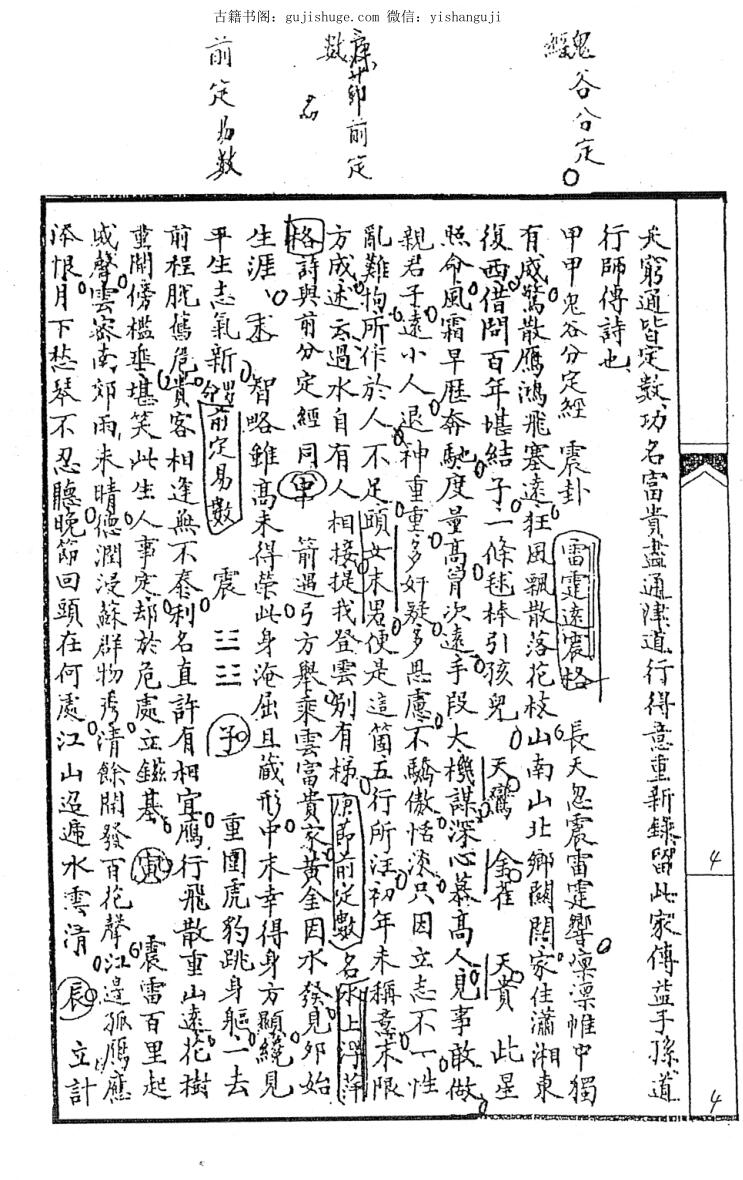 古籍书阁：gujishuge.com 微信：yishanguji
鬼谷分定
經
康節前定
數 名
前定易數
夫窮通皆定數功名富貴盡通津道行得意重新錄留此家傳益子孫道
行師傅詩也
甲甲鬼谷分定經 震卦 雷霆遠震格 長天忽震雷霆響凛凛帷中獨
有威驚散鴈鴻飛塞遠狂風飄散落花枝山南山北鄉關閣家住瀟湘東
復西借問百年堪結子一條毬棒引孩兒 天鸞 金雀 天貴 此星
照命風霜早歷奔馳度量高胷次遠手段大機謀深心慕高人見事敢做
親君子遠小人退神重重多奸疑多思慮不驕傲恬淡只因立志不一性
亂難拘所作於人不足頭女末男便是這箇五行所汪初年未稱意末限
方成述云過水自有人相接提我登雲別有梯 康節前定數 名水上浮萍
格詩與前分定經同 甲 箭遇弓方舉乘雲富貴家黃金因水發見夘始
生涯 智略雖高未得榮此身淹屈且藏形中末幸得身方顯繞見
平生志氣新 前定易數 震 三三 子 重圍虎豹跳身軀一去
前程脫舊危貴客相逢無不泰利名直許有相宜鴈行飛散重山遠花樹
重開傍檻垂堪笑此生人事完却於危處立鎡基 寅 震雷百里起
威聲雲密南郊雨未晴德潤浸蘇群物秀清餘開發百花聲江邊孤鴈應
添恨月下愁琴不忍聽晚節回頭在何處江山迢遞水雲清 辰 立計
4
4